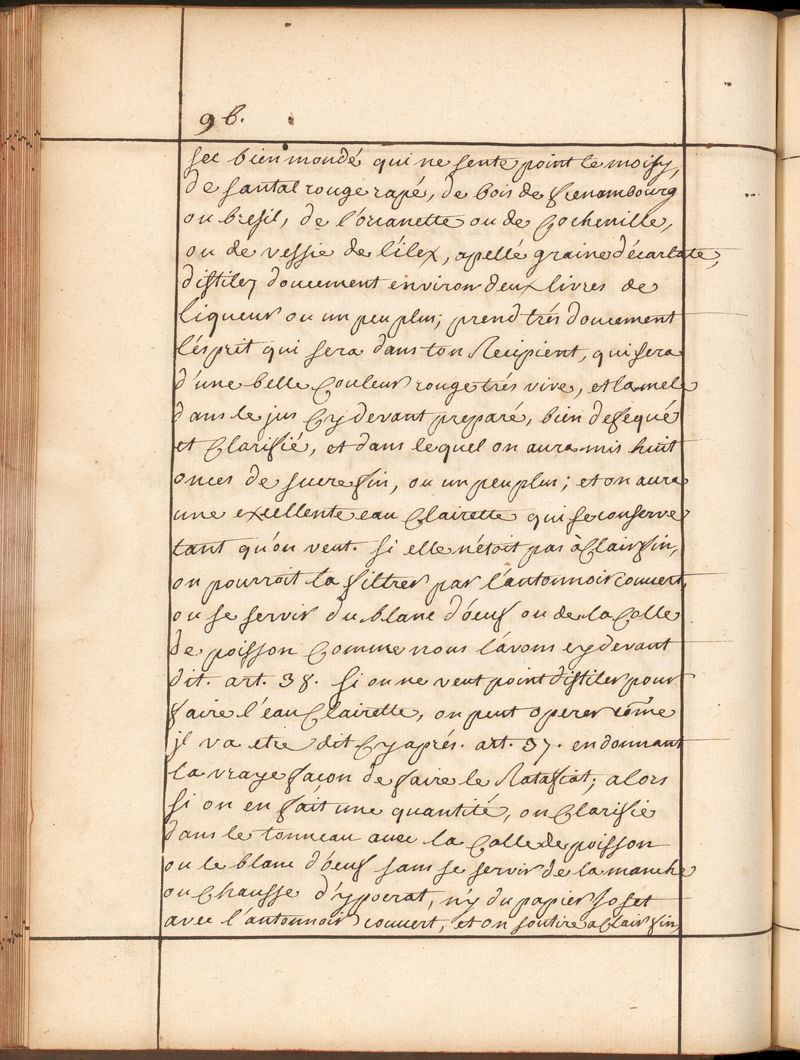 96.
sec bien mondé qui ne sente point le moisy,
de santal rouge rapé, de bois de fernambourg
ou bresil, de l'orcanette ou de Cochenille,
ou de vessie de l'ilex, apellé graine d'écarlate,
distilez doucement environ deux livres de
liqueur ou un peu plus; prend trés doucement
l'ésprit qui sera dans ton Recipient, qui sera
d'une belle Couleur rouge trés vive, et la mele
dans le jus Cy devant preparé, bien desequé
et Clarifié, et dans lequel on aura mis huit
onces de sucre fin, ou un peu plus; et on aura
une excellente eau Clairette qui se conserve
tant qu'on veut. si elle n'étoit pas à Clair fin,
on pourroit la filtrer par l'antonnoir couvert,
ou se servir du blanc d'oeuf ou de la Colle
de poisson Comme nous l'avons cy devant
dit. art. 38. si on ne veut point distiler pour
faire l'eau Clairette, on peut operer come
jl va etre dit Cy aprés. art. 37. en donnant
la vraye façon de faire le Ratafiat; alors
si on en fait une quantité, on Clarifie
dans le tonneau avec la Colle de poisson
ou le blanc d'oeuf sans se servir de la manche
ou Chausse d'ypocrat, n'y du papier Joset
avec l'antonnoir couvert, et on soutire a Clair fin,